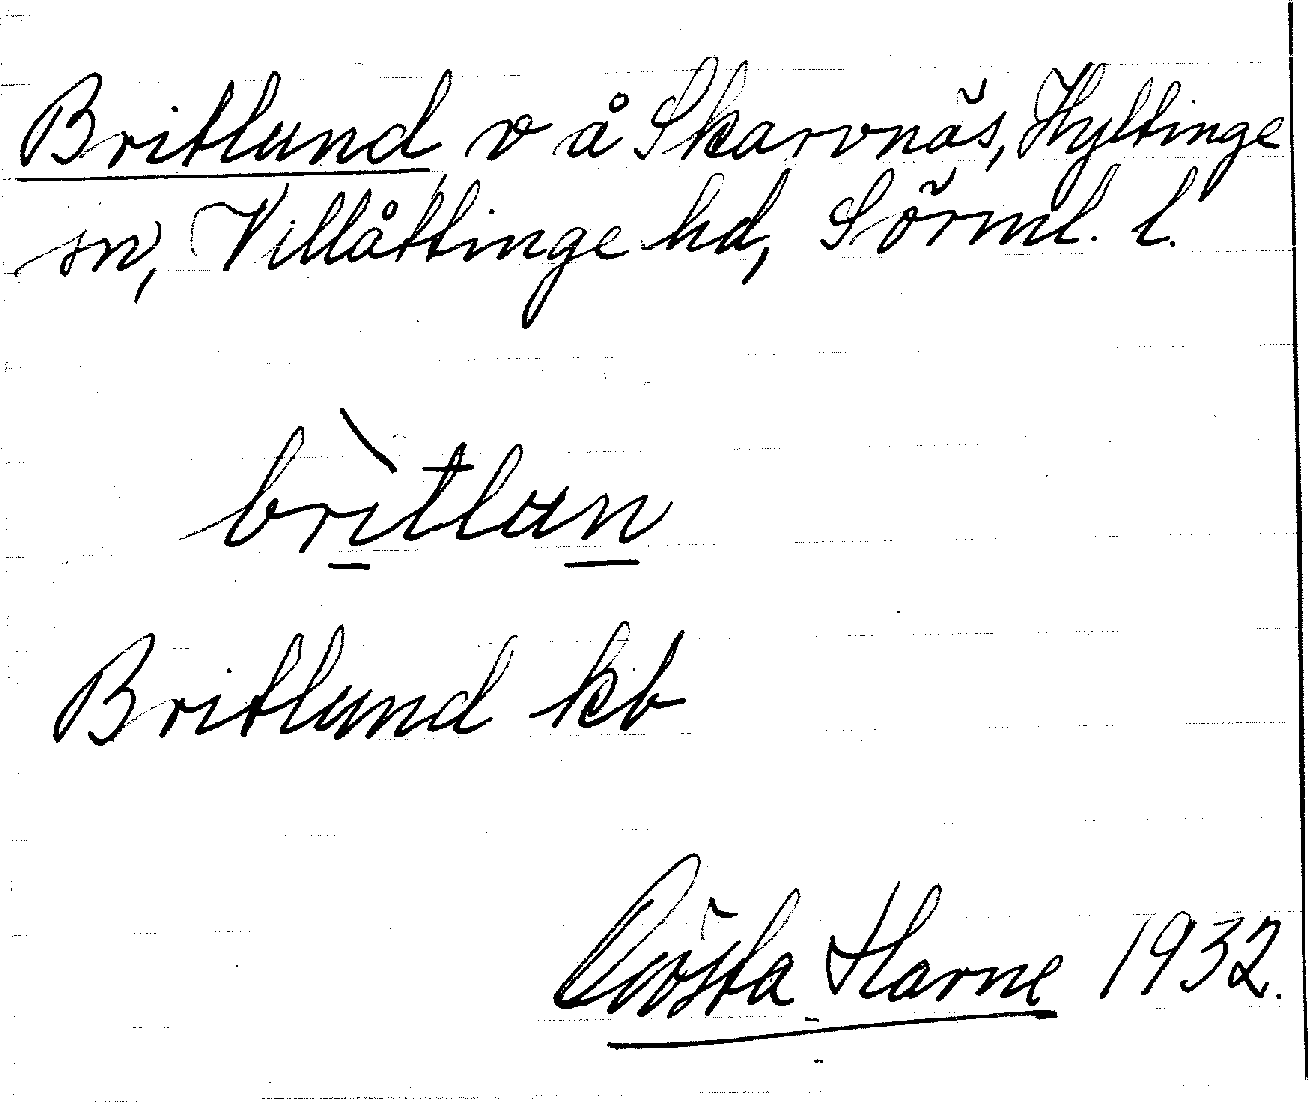 Britlund v å Skarvnäs, Hyltinge
sn, Villåttinge hd, Sörml. l.
brìtlun
Britlund kb
Gösta Harne 1932.